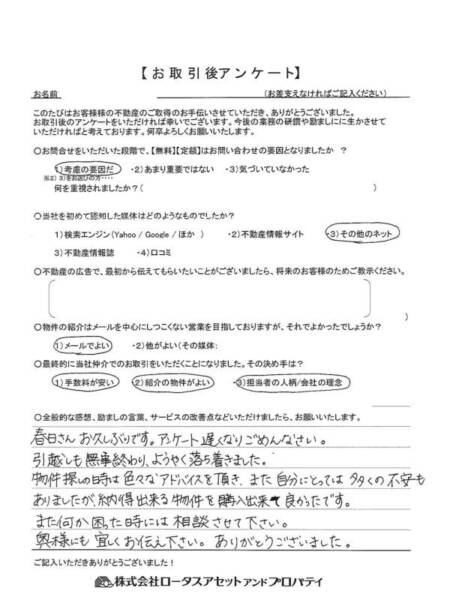 【お取引後アンケート】
お名前 (お差支えなければご記入ください)
このたびはお客様様の不動産のご取得のお手伝いさせていただき、ありがとうございました。
お取引後のアンケートをいただければ幸いでございます。今後の業務の研鑽や励ましに生かさせて
いただければと考えております。何卒よろしくお願いいたします。
○お問合せをいただいた段階で、【無料】【定額】はお問い合わせの要因となりましたか ?
1)考慮の要因だ ・2)あまり重要ではない ・3)気づいていなかった
※2) 3)をお選びの方・・・・
何を重視されましたか?( )
○当社を初めて認知した媒体はどのようなものでしたか?
1)検索エンジン(Yahoo / Google / ほか ) ・2)不動産情報サイト ・3)その他のネット
3)不動産情報誌 ・4)口コミ
○不動産の広告で、最初から伝えてもらいたいことがございましたら、将来のお客様のためご教示ください。
○物件の紹介はメールを中心にしつこくない営業を目指しておりますが、それでよかったでしょうか?
1)メールでよい ・2)他がよい(その媒体:
○最終的に当社仲介でのお取引をいただくことになりました。その決め手は?
1)手数料が安い ・2)紹介の物件がよい ・3)担当者の人柄/会社の理念
○全般的な感想、励ましの言葉、サービスの改善点などいただけましたら、お願いいたします。
春日さん お久しぶりです。アンケート遅くなりごめんなさい。
引越しも無事終わり、ようやく落ち着きました。
物件探しの時は色々なアドバイスを頂き、また自分にとっては多くの不安も
ありましたが、納得出来る物件を購入出来て良かったです。
また何か困った時には相談させて下さい。
奥様にも宜しくお伝え下さい。ありがとうございました。
ご記入いただきありがとうございました!
株式会社ロータスアセットアンドプロパティ